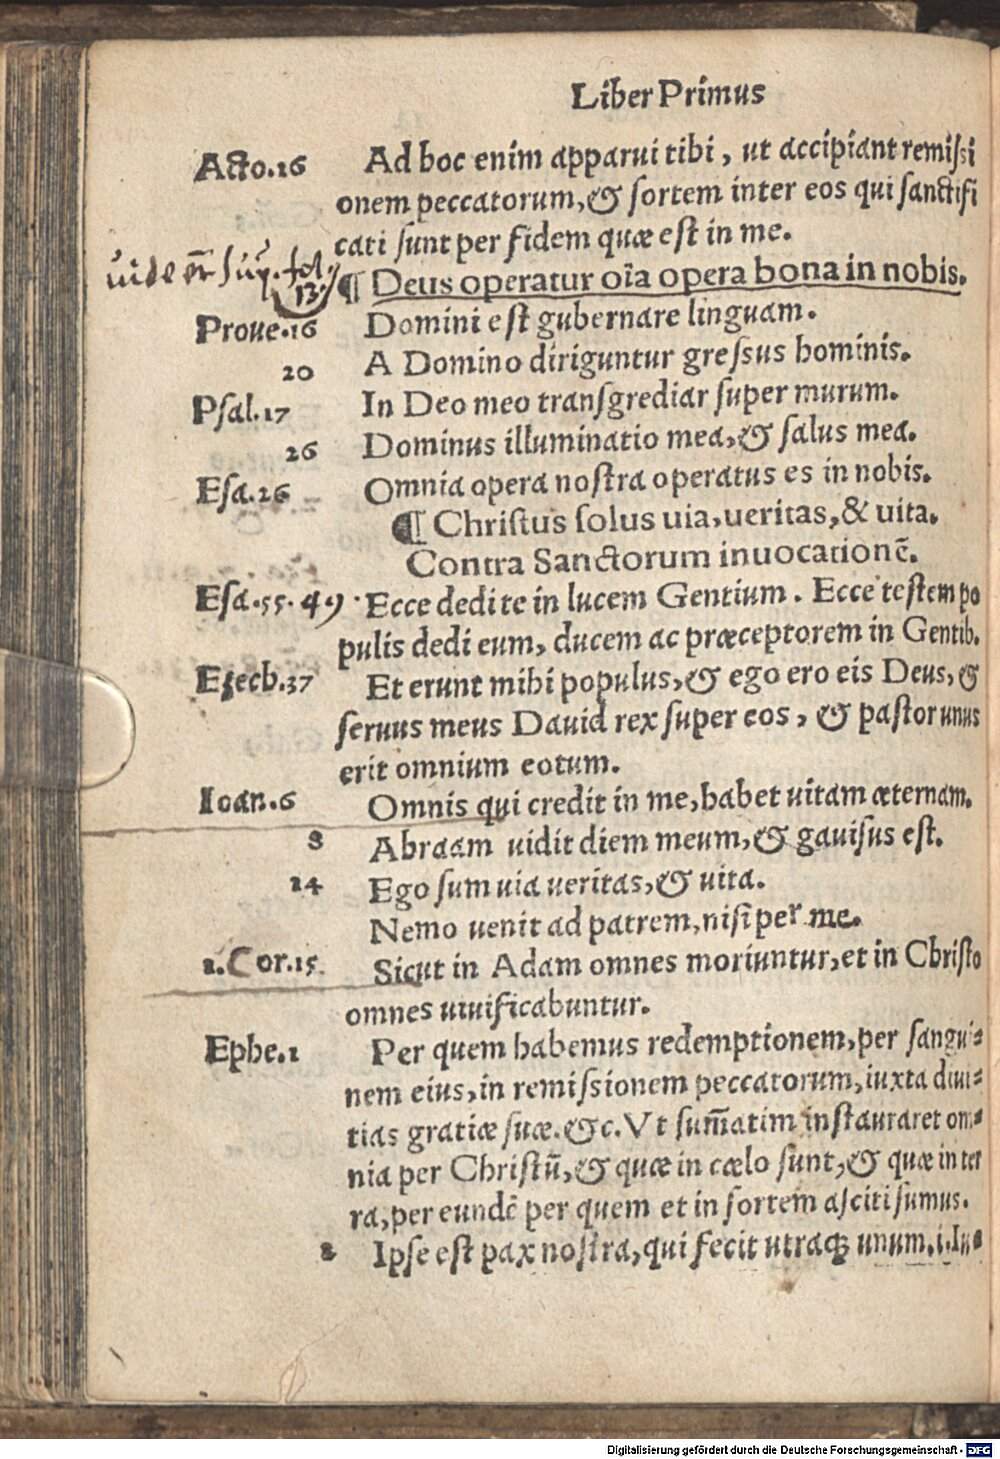 Liber Primus
Acto.16 Ad hoc enim apparui tibi, ut accipiant remissi
onem peccatorum, & sortem inter eos qui sanctifi
cati sunt per fidem quæ est in me.
uide
13.
¶ Deus operatur oīa opera bona in nobis.
Proue.16 Domini est gubernare linguam.
20 A Domino diriguntur gressus hominis.
Psal.17 In Deo meo transgrediar super murum.
26 Dominus illuminatio mea, & salus mea.
Esa.26 Omnia opera nostra operatus es in nobis.
¶ Christus solus uia, ueritas, & uita.
Contra Sanctorum inuocationē.
Esa.55.49 Ecce dedi te in lucem Gentium. Ecce testem po
pulis dedi eum, ducem ac præceptorem in Gentib.
Ezech.37 Et erunt mihi populus, & ego ero eis Deus, &
seruus meus Dauid rex super eos, & pastor unus
erit omnium eotum.
Ioan.6 Omnis qui credit in me, habet uitam æternam.
8 Abraam uidit diem meum, & gauisus est.
14 Ego sum uia ueritas, & uita.
Nemo uenit ad patrem, nisi per me.
1.Cor.15. Sicut in Adam omnes moriuntur, et in Christo
omnes uiuificabuntur.
Ephe.1 Per quem habemus redemptionem, per sangui-
nem eius, in remissionem peccatorum, iuxta diui-
tias gratiæ suæ. &c. Vt sum̄atim instauraret om-
nia per Christū, & quæ in cælo sunt, & quæ in ter
ra, per eundē per quem et in sortem asciti sumus.
2 Ipse est pax nostra, qui fecit utraq; unum. i. Iu-
Digitalisierung gefördert durch die Deutsche Forschungsgemeinschaft - DFG